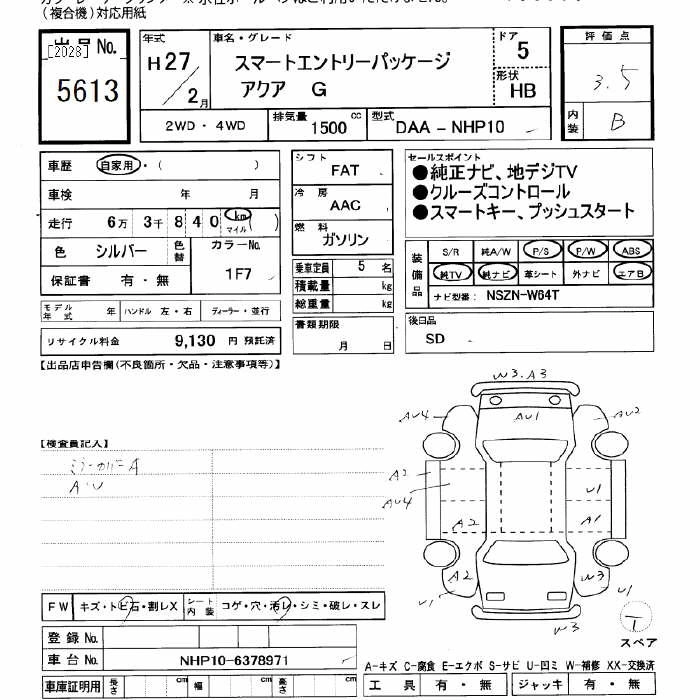 (複合機)対応用紙
出品No.
[2028]
5613
年式
H27/2月
車名・グレード
スマートエントリーパッケージ
アクア G
ドア
5
形状
HB
評価点
3.5
内装
B
2WD・4WD
排気量 1500 cc
型式
DAA-NHP10
車歴 自家用・( )
車検 年 月
走行 6万 3千 8 4 0 km マイル ( )
色 シルバー 色替
カラーNo.
1F7
保証書 有・無
シフト
FAT
冷房
AAC
燃料
ガソリン
乗車定員 5 名
積載量 kg
総重量 kg
書類期限
月 日
セールスポイント
●純正ナビ、地デジTV
●クルーズコントロール
●スマートキー、プッシュスタート
装備品
S/R 純A/W P/S P/W ABS
純TV 純ナビ 革シート 外ナビ エアB
ナビ型番: NSZN-W64T
後日品
SD
モデル年式 年 ハンドル 左・右 ディーラー・並行
リサイクル料金 9,130 円 預託済
【出品店申告欄(不良箇所・欠品・注意事項等)】
【検査員記入】
ミラーカバーA
A・U
W3.A3
AU4
AU1
AU2
A2
AU4
U1
A2
A1
A2
W3
U1
U1
W3
T
スペア
FW キズ・トビ石・割レX
シート内装 コゲ・穴・汚レ・シミ・破レ・スレ
登録No.
車台No. NHP10-6378971
車庫証明用 長さ cm 幅 cm 高さ cm
A-キズ C-腐食 E-エクボ S-サビ U-凹ミ W-補修 XX-交換済
工具 有・無 ジャッキ 有・無